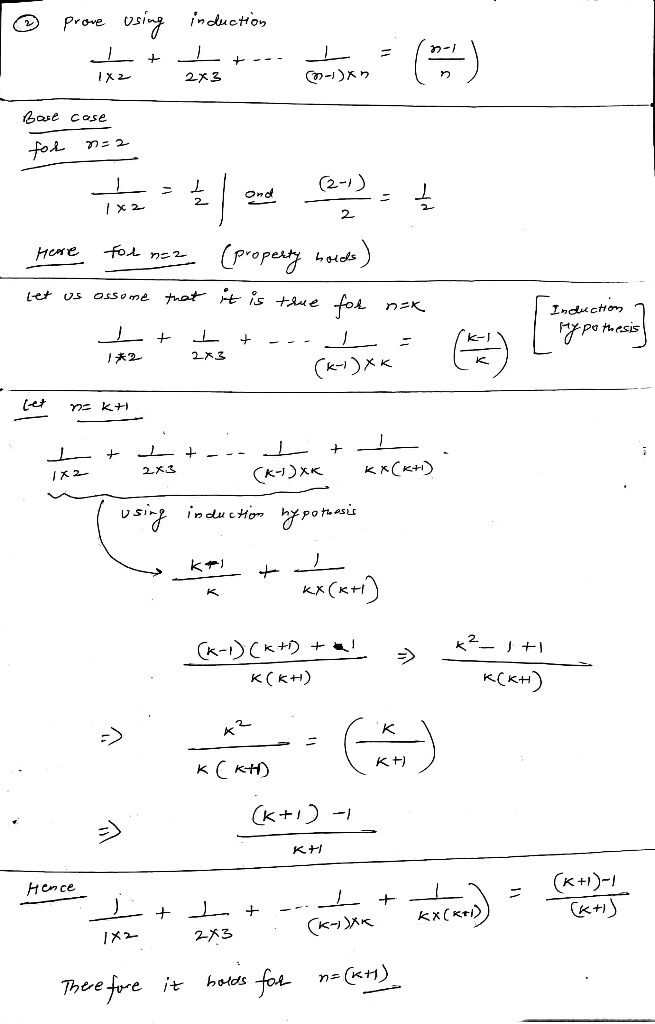 ② Prove using induction
1/(1×2) + 1/(2×3) + --- 1/((n-1)×n) = ((n-1)/n)
Base case
for n=2
1/(1×2) = 1/2 | and (2-1)/2 = 1/2
Here for n=2 (property holds)
Let us assume that it is true for n=K
[Induction Hypothesis]
1/(1*2) + 1/(2×3) + --- 1/((K-1)×K) = ((K-1)/K)
Let n= K+1
1/(1×2) + 1/(2×3) + --- 1/((K-1)×K) + 1/(K×(K+1))
using induction hypothesis
(K-1)/K + 1/(K×(K+1))
((K-1)(K+1) + 1)/(K(K+1)) ⇒ (K² - 1 + 1)/(K(K+1))
⇒ K²/(K(K+1)) = (K/(K+1))
⇒ ((K+1) -1)/(K+1)
Hence
1/(1×2) + 1/(2×3) + --- 1/((K-1)×K) + 1/(K×(K+1))) = ((K+1)-1)/(K+1)
Therefore it holds for n=(K+1)